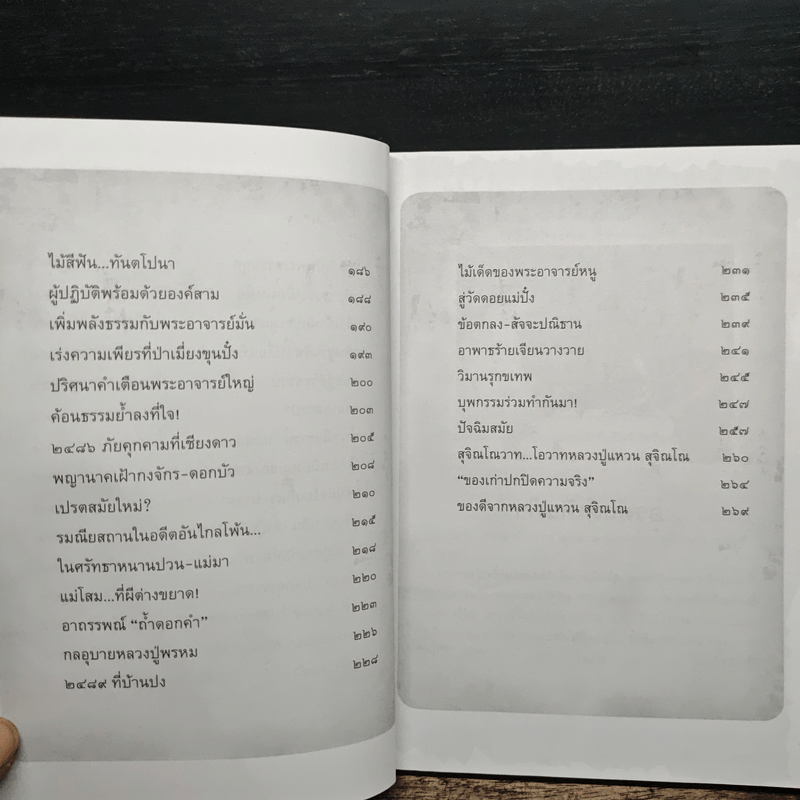 ไม้สีฟัน...ทันตโปนา ๑๘๖
ผู้ปฏิบัติพร้อมด้วยองค์สาม ๑๘๘
เพิ่มพลังธรรมกับพระอาจารย์มั่น ๑๙๐
เร่งความเพียรที่ป่าเมี่ยงขุนปั๋ง ๑๙๓
ปริศนาคำเตือนพระอาจารย์ใหญ่ ๒๐๐
ค้อนธรรมย้ำลงที่ใจ! ๒๐๓
๒๔๘๖ ภัยคุกคามที่เชียงดาว ๒๐๕
พญานาคเฝ้ากงจักร-ดอกบัว ๒๐๘
เปรตสมัยใหม่? ๒๑๐
รมณียสถานในอดีตอันไกลโพ้น... ๒๑๕
ในศรัทธาหนานปวน-แม่มา ๒๑๘
แม่โสม...ที่ผีต่างขยาด! ๒๒๐
อาถรรพณ์ “ถ้ำดอกคำ” ๒๒๓
กลอุบายหลวงปู่พรหม ๒๒๖
๒๔๘๙ ที่บ้านปง ๒๒๘
ไม้เด็ดของพระอาจารย์หนู ๒๓๑
สู่วัดดอยแม่ปั๋ง ๒๓๕
ข้อตกลง-สัจจะปณิธาน ๒๓๙
อาพาธร้ายเจียนวางวาย ๒๔๑
วิมานรุกขเทพ ๒๔๕
บุพกรรมร่วมทำกันมา! ๒๔๗
ปัจฉิมสมัย ๒๕๗
สุจิณโณวาท...โอวาทหลวงปู่แหวน สุจิณโณ ๒๖๐
“ของเก่าปกปิดความจริง” ๒๖๔
ของดีจากหลวงปู่แหวน สุจิณโณ ๒๖๙